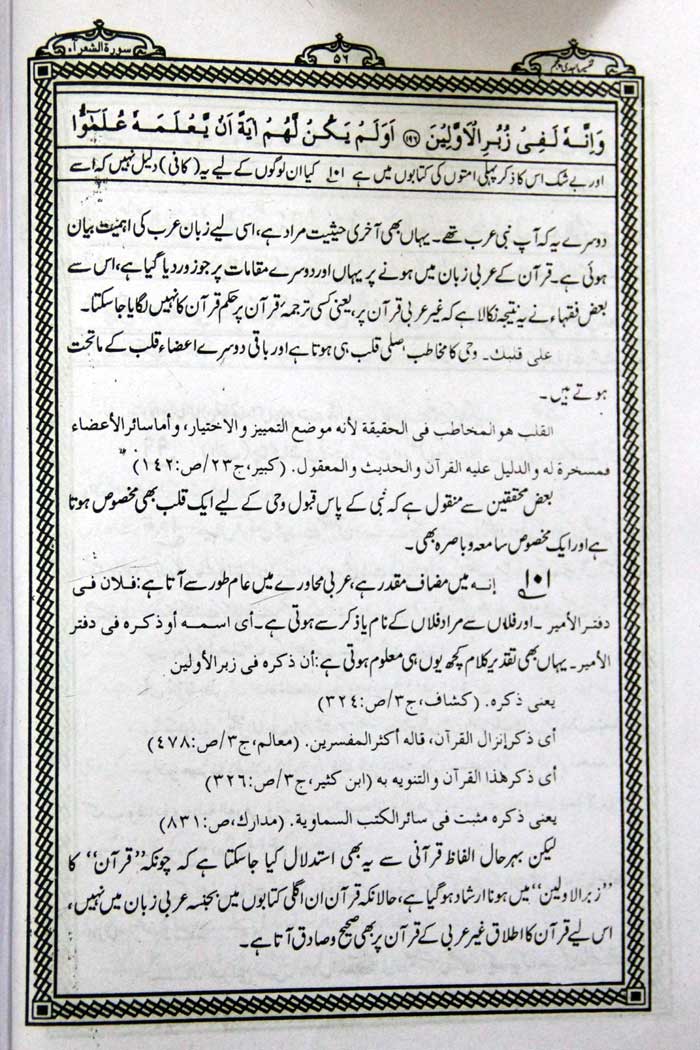 سورة الشعرآء
۵۶
تفسیر ماجدی پنجم
وَاِنَّهٗ لَفِیْ زُبُرِ الْاَوَّلِیْنَ ﴿۱۹۶﴾ اَوَلَمْ یَكُنْ لَّهُمْ اٰیَةً اَنْ یَّعْلَمَهٗ عُلَمٰٓؤُا
اور بے شک اس کا ذکر پہلی امتوں کی کتابوں میں ہے ۱۰۱ کیا ان لوگوں کے لیے یہ (کافی) دلیل نہیں کہ اسے
دوسرے یہ کہ آپ نبی عرب تھے۔ یہاں بھی آخری حیثیت مراد ہے، اسی لیے زبان عرب کی اہمیت بیان
ہوئی ہے۔ قرآن کے عربی زبان میں ہونے پر یہاں اور دوسرے مقامات پر جو زور دیا گیا ہے، اس سے
بعض فقہاء نے یہ نتیجہ نکالا ہے کہ غیر عربی قرآن پر، یعنی کسی ترجمۂ قرآن پر حکم قرآن کا نہیں لگایا جاسکتا۔
علی قلبك۔ وحی کا مخاطب اصلی قلب ہی ہوتا ہے اور باقی دوسرے اعضاء قلب کے ماتحت
ہوتے ہیں۔
القلب هو المخاطب فی الحقیقة لأنه موضع التمییز والاختیار، وأما سائر الأعضاء
فمسخرة له والدلیل علیه القرآن والحدیث والمعقول. (کبیر، ج۲۳/ص:۱۴۲)
بعض محققین سے منقول ہے کہ نبی کے پاس قبول وحی کے لیے ایک قلب بھی مخصوص ہوتا
ہے اور ایک مخصوص سامعہ و باصرہ بھی۔
۱۰۱ إنه میں مضاف مقدر ہے، عربی محاورے میں عام طور سے آتا ہے: فلان فی
دفتر الأمیر۔ اور فلاں سے مراد فلاں کے نام یا ذکر سے ہوتی ہے۔ أی اسمه أو ذکره فی دفتر
الأمیر۔ یہاں بھی تقدیر کلام کچھ یوں ہی معلوم ہوتی ہے: أن ذکره فی زبر الأولین
یعنی ذکره. (کشاف، ج۳/ص:۳۲۴)
أی ذکر إنزال القرآن، قاله أکثر المفسرین. (معالم، ج۳/ص:۴۷۸)
أی ذکر هذا القرآن والتنویه به (ابن کثیر، ج۳/ص:۳۲۶)
یعنی ذکره مثبت فی سائر الکتب السماویة. (مدارك، ص:۸۳۱)
لیکن بہرحال الفاظ قرآنی سے یہ بھی استدلال کیا جاسکتا ہے کہ چونکہ ’’قرآن‘‘ کا
’’زبر الاولین‘‘ میں ہونا ارشاد ہوگیا ہے، حالانکہ قرآن ان اگلی کتابوں میں بجنسہ عربی زبان میں نہیں،
اس لیے قرآن کا اطلاق غیر عربی کے قرآن پر بھی صحیح و صادق آتا ہے۔